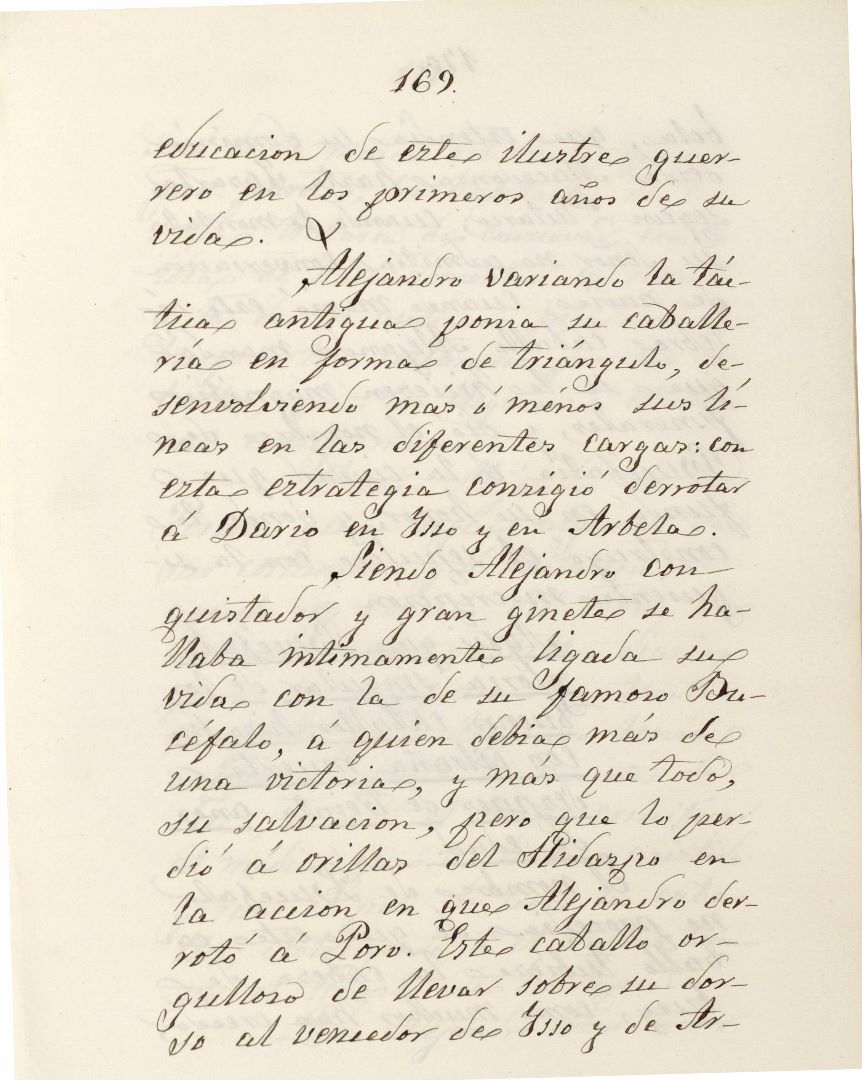 169.
educacion de este ilustre guer-
rero en los primeros años de su
vida.
Alejandro variando la tác-
tica antigua ponia su caballe-
ría en forma de triángulo, de-
senvolviendo más ó ménos sus lí-
neas en las diferentes cargas: con
esta estrategia consigió derrotar
á Dario en Isso y en Arbela.
Siendo Alejandro con
quistador y gran ginete se ha-
llaba intimamente ligada su
vida con la de su famoso Bu-
céfalo, á quien debia más de
una victória, y más que todo,
su salvacion, pero que lo per-
dió á orillas del Hidazpo en
la accion en que Alejandro der-
rotó á Poro. Este caballo or-
gulloso de llevar sobre su dor-
so al vencedor de Isso y de Ar-